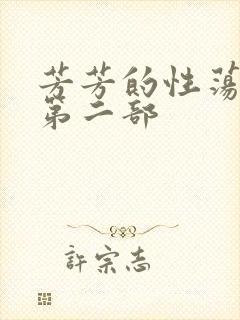 芳芳的性荡
第二部
許宗志